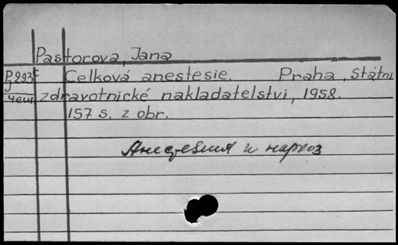 Pastorova, Jana
Celková anestesie. Praha, Státní
zdravotnické nakladatelství, 1958.
157 s. z obr.
Анестезия и наркоз